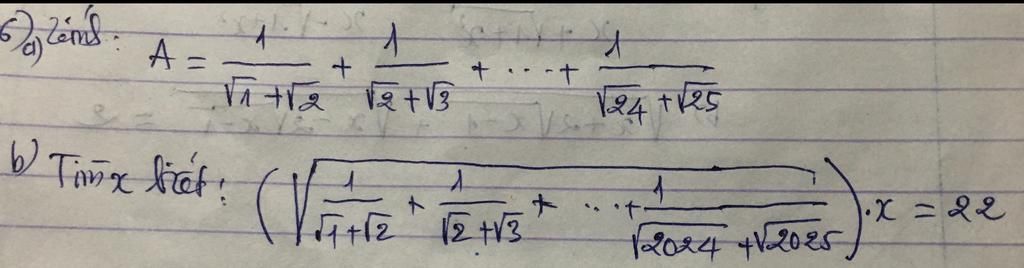 6) a) Tính:
A = 1/(√1 + √2) + 1/(√2 + √3) + ... + 1/(√24 + √25)
b) Tìm x biết: (√(1/(√1 + √2) + 1/(√2 + √3) + ... + 1/(√2024 + √2025))).x = 22